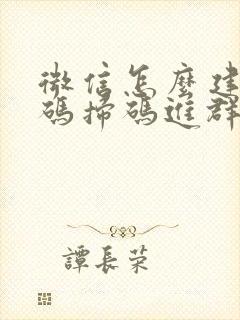 微信怎麼建
碼掃碼進群
譚長荣